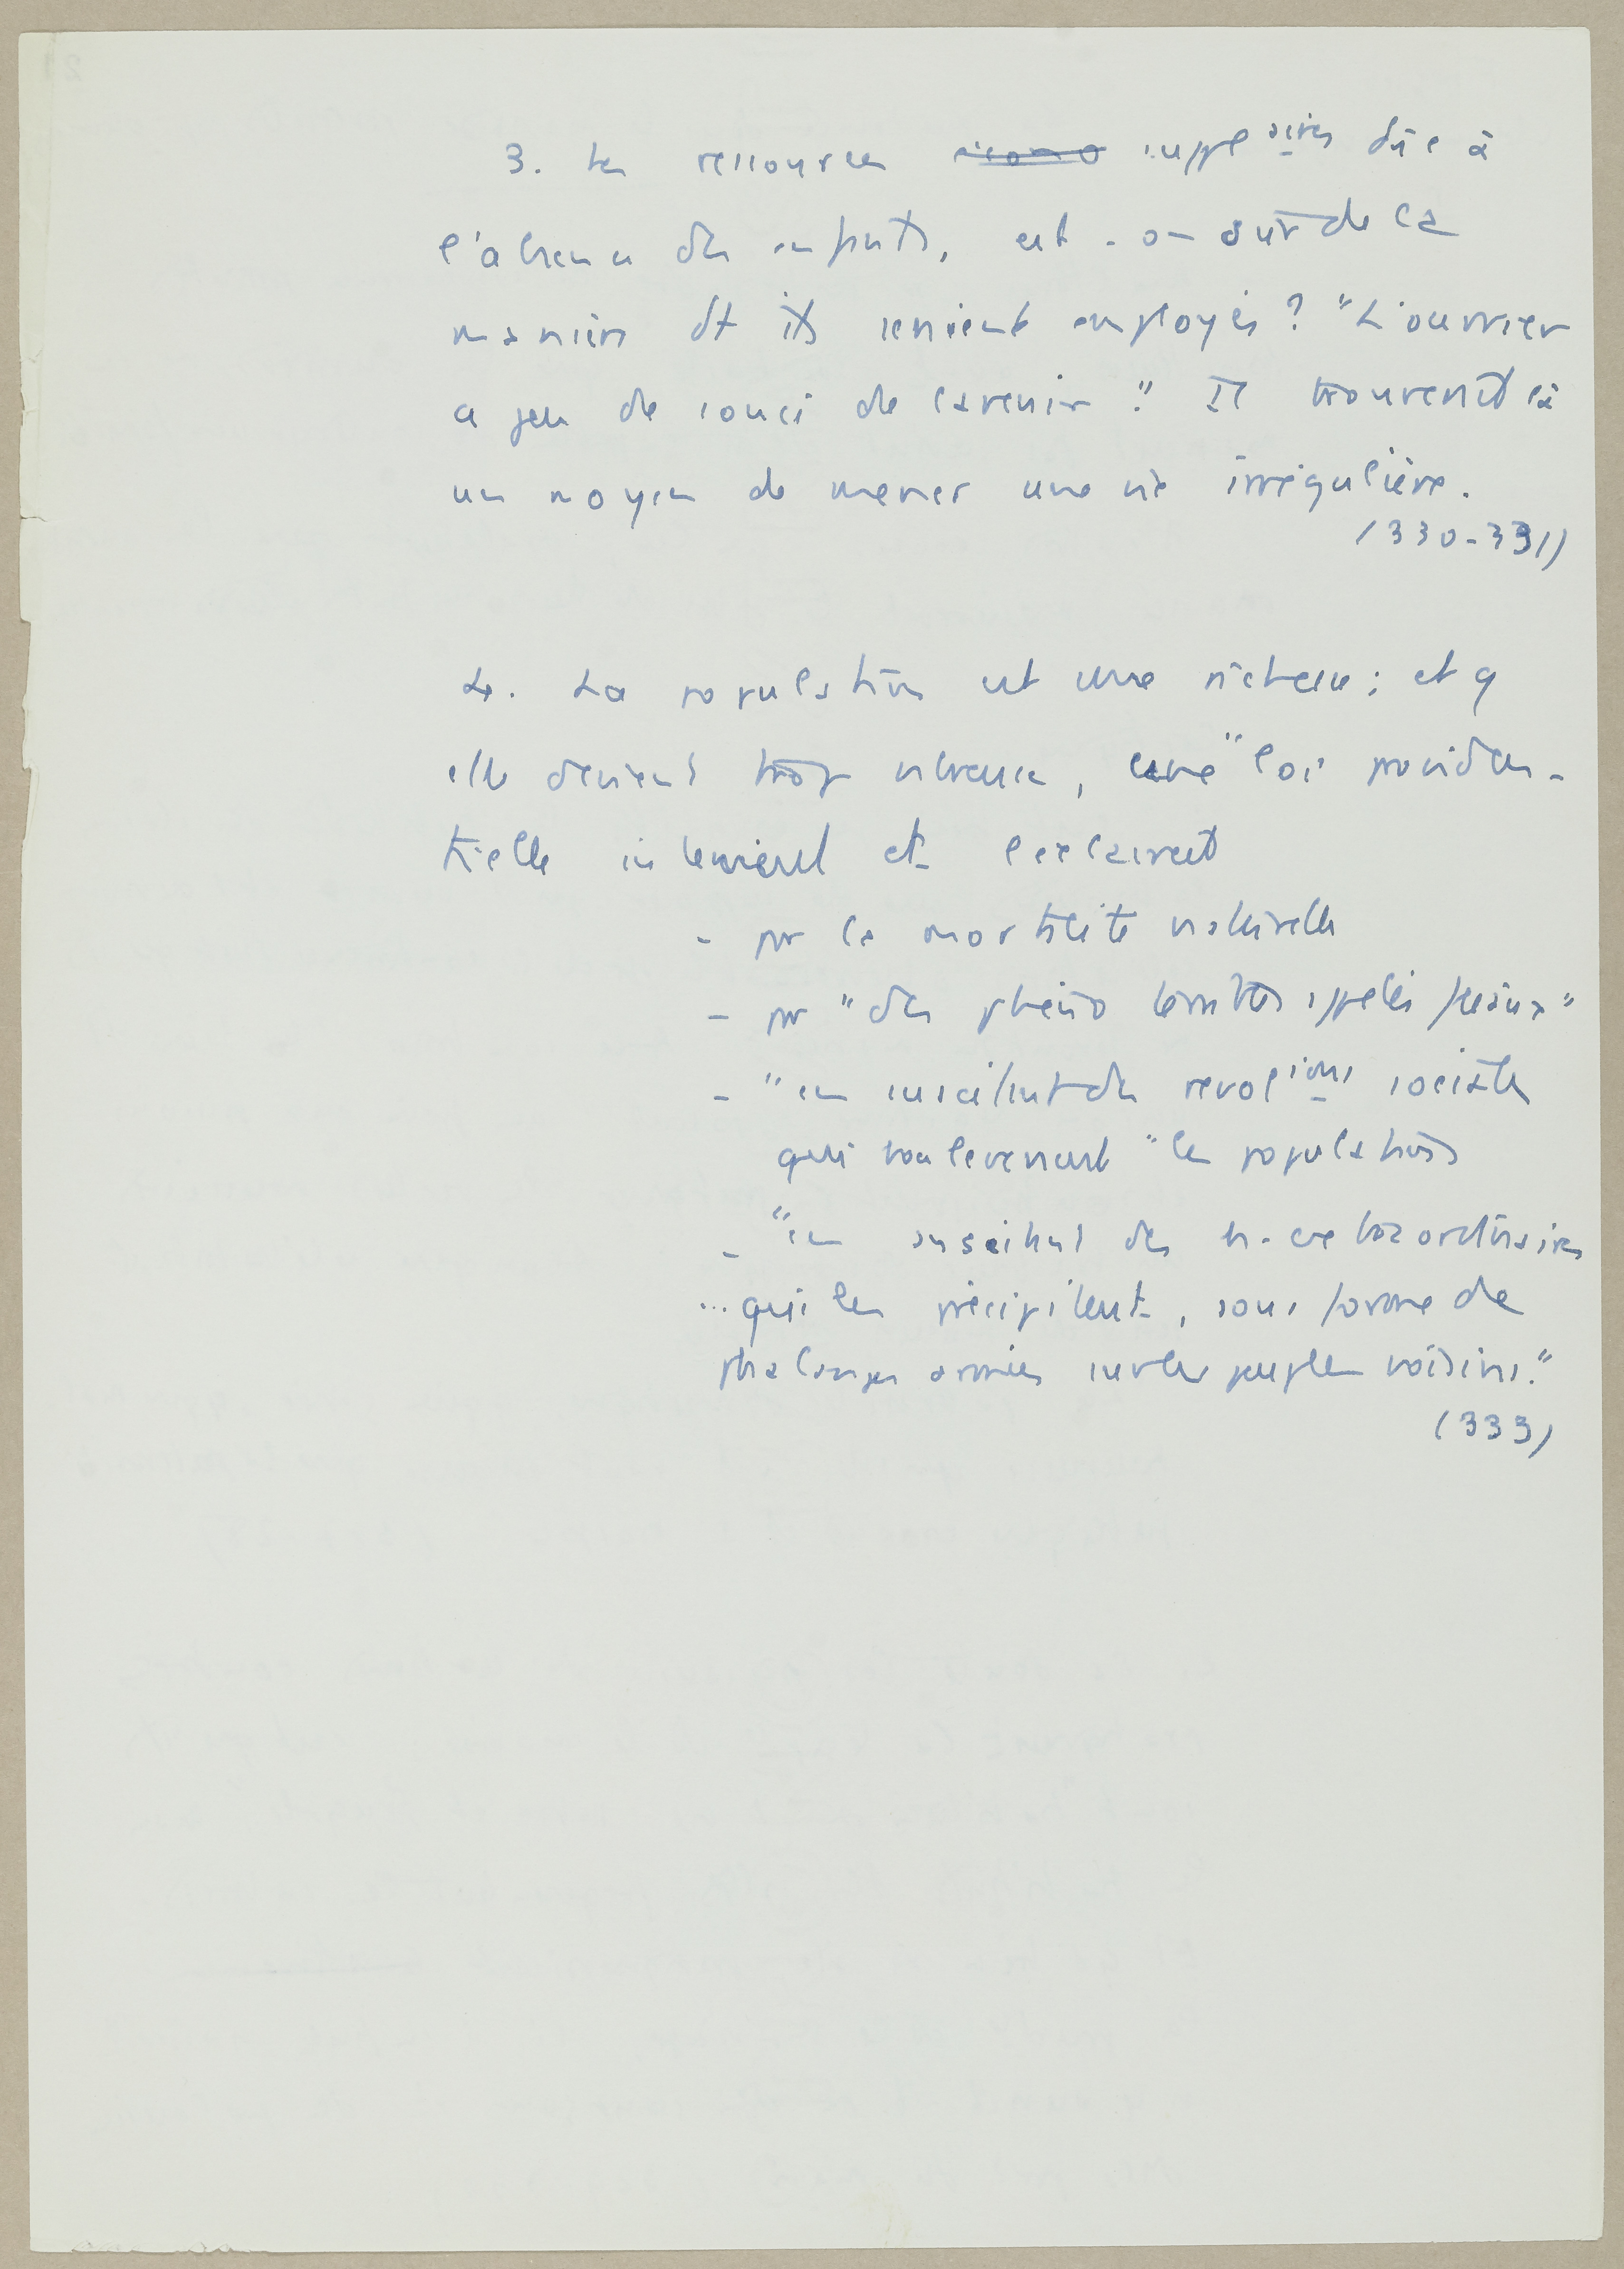 3. Les ressources supplaires dûe à
l'absence des enfants, est-on sûr de la
manière dt ils seraient employés ? "L'ouvrier
a peu de souci de l'avenir". Il trouverait là
un moyen de mener une vie irrégulière.
(330-331)
4. La population est une richesse ; et q
elle devient trop nbreuse, une "loi providen-
tielle intervient et l'éclaircit
- par la mortalité naturelle
- par "des phéno terribles appelés fléaux"
- "en suscitant des révolions sociales
qui bouleversent" les populations
- "en suscitant des h. extraordinaires
... qui les précipitent, sous forme de
phalanges armées sur les peuples voisins."
(333)